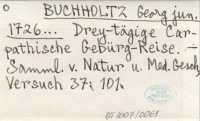 BUCHHOLTZ Georg jun.
1726... Drey-tägige Car-
pathische Gebürg-Reise. —
Samml. v. Natur u. Med. Gesch.
Versuch 37: 101.
ST 1007/0061